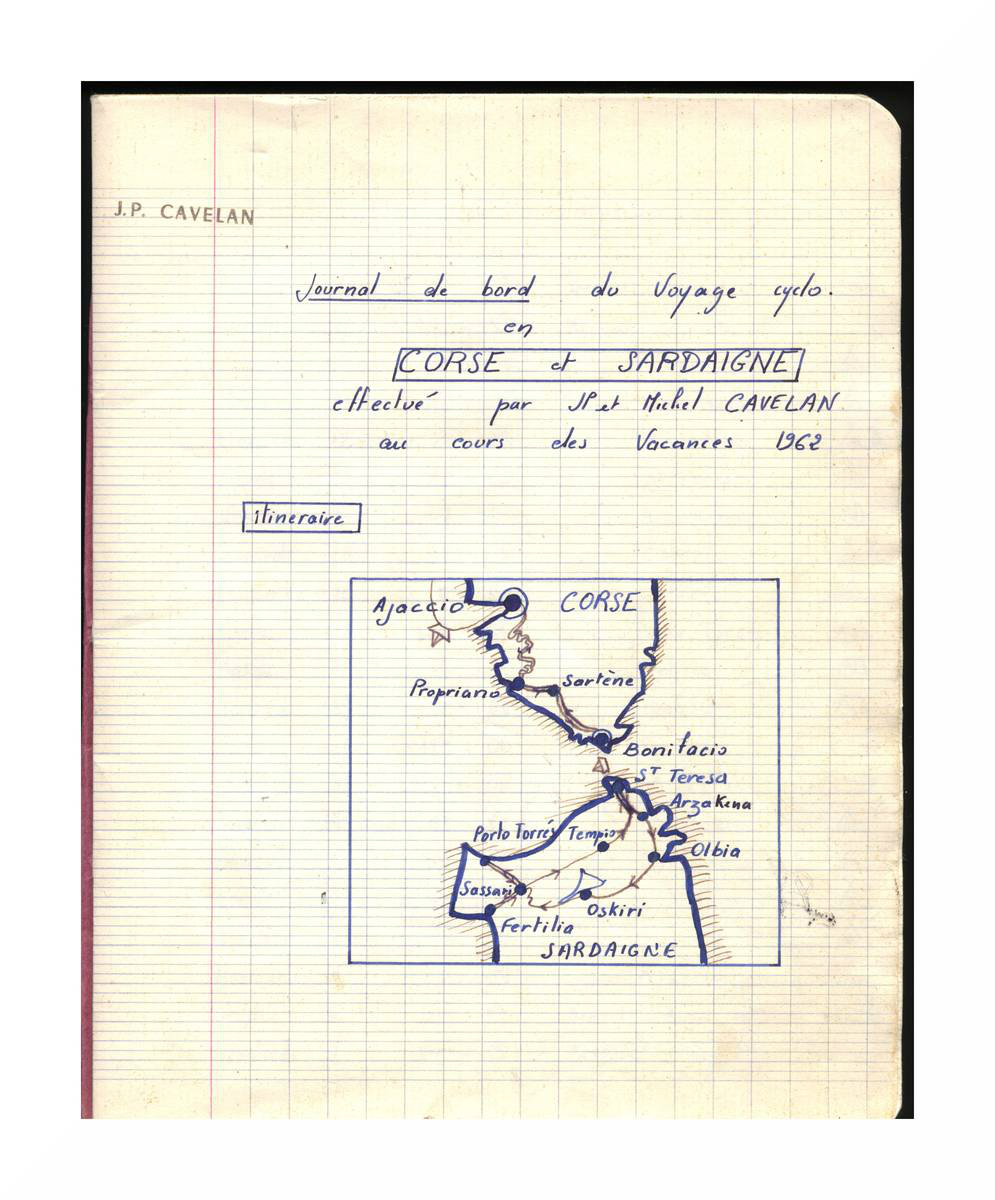 J.P. CAVELAN
Journal de bord du Voyage cyclo.
en
CORSE et SARDAIGNE
effectué par JP et Michel CAVELAN
au cours des Vacances 1962
itineraire
Ajaccio CORSE
Propriano Sartène
Bonifacio
ST Teresa
Arzakena
Porto Torrés Tempio
Olbia
Sassari
Oskiri
Fertilia
SARDAIGNE